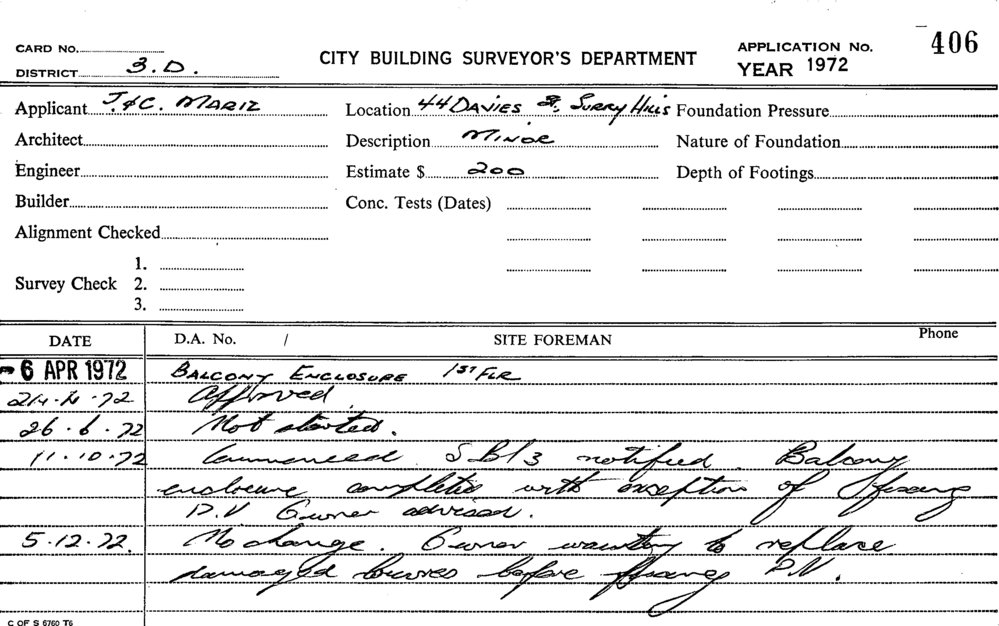 CARD No.
DISTRICT 3.D.
CITY BUILDING SURVEYOR'S DEPARTMENT
APPLICATION No. 406
YEAR 1972
Applicant J. & C. MARIZ Location 44 DAVIES St. SURRY HILLS Foundation Pressure
Architect Description MINOR Nature of Foundation
Engineer Estimate $ 200 Depth of Footings
Builder Conc. Tests (Dates)
Alignment Checked
1.
Survey Check 2.
3.
DATE D.A. No. / SITE FOREMAN Phone
6 APR 1972 BALCONY ENCLOSURE 1ST FLR
24.4.72 Approved.
26.6.72 Not started.
11.10.72 Commenced. SB13 notified. Balcony
enclosure completed with exception of fixing
P.V Owner advised.
5.12.72. No change. Owner wanting to replace
damaged louvres before fixing P.V.
C OF S 6760 T6